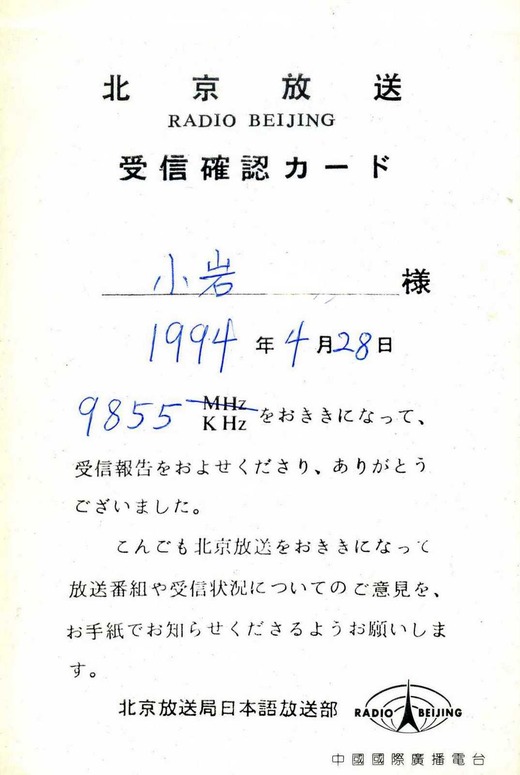 北京放送
RADIO BEIJING
受信確認カード
小岩 様
1994年4月28日
9855 MHz
KHz をおききになって、
受信報告をおよせくださり、ありがとう
ございました。
こんごも北京放送をおききになって
放送番組や受信状況についてのご意見を、
お手紙でお知らせくださるようお願いしま
す。
北京放送局日本語放送部
RADIO BEIJING
中國國際廣播電台